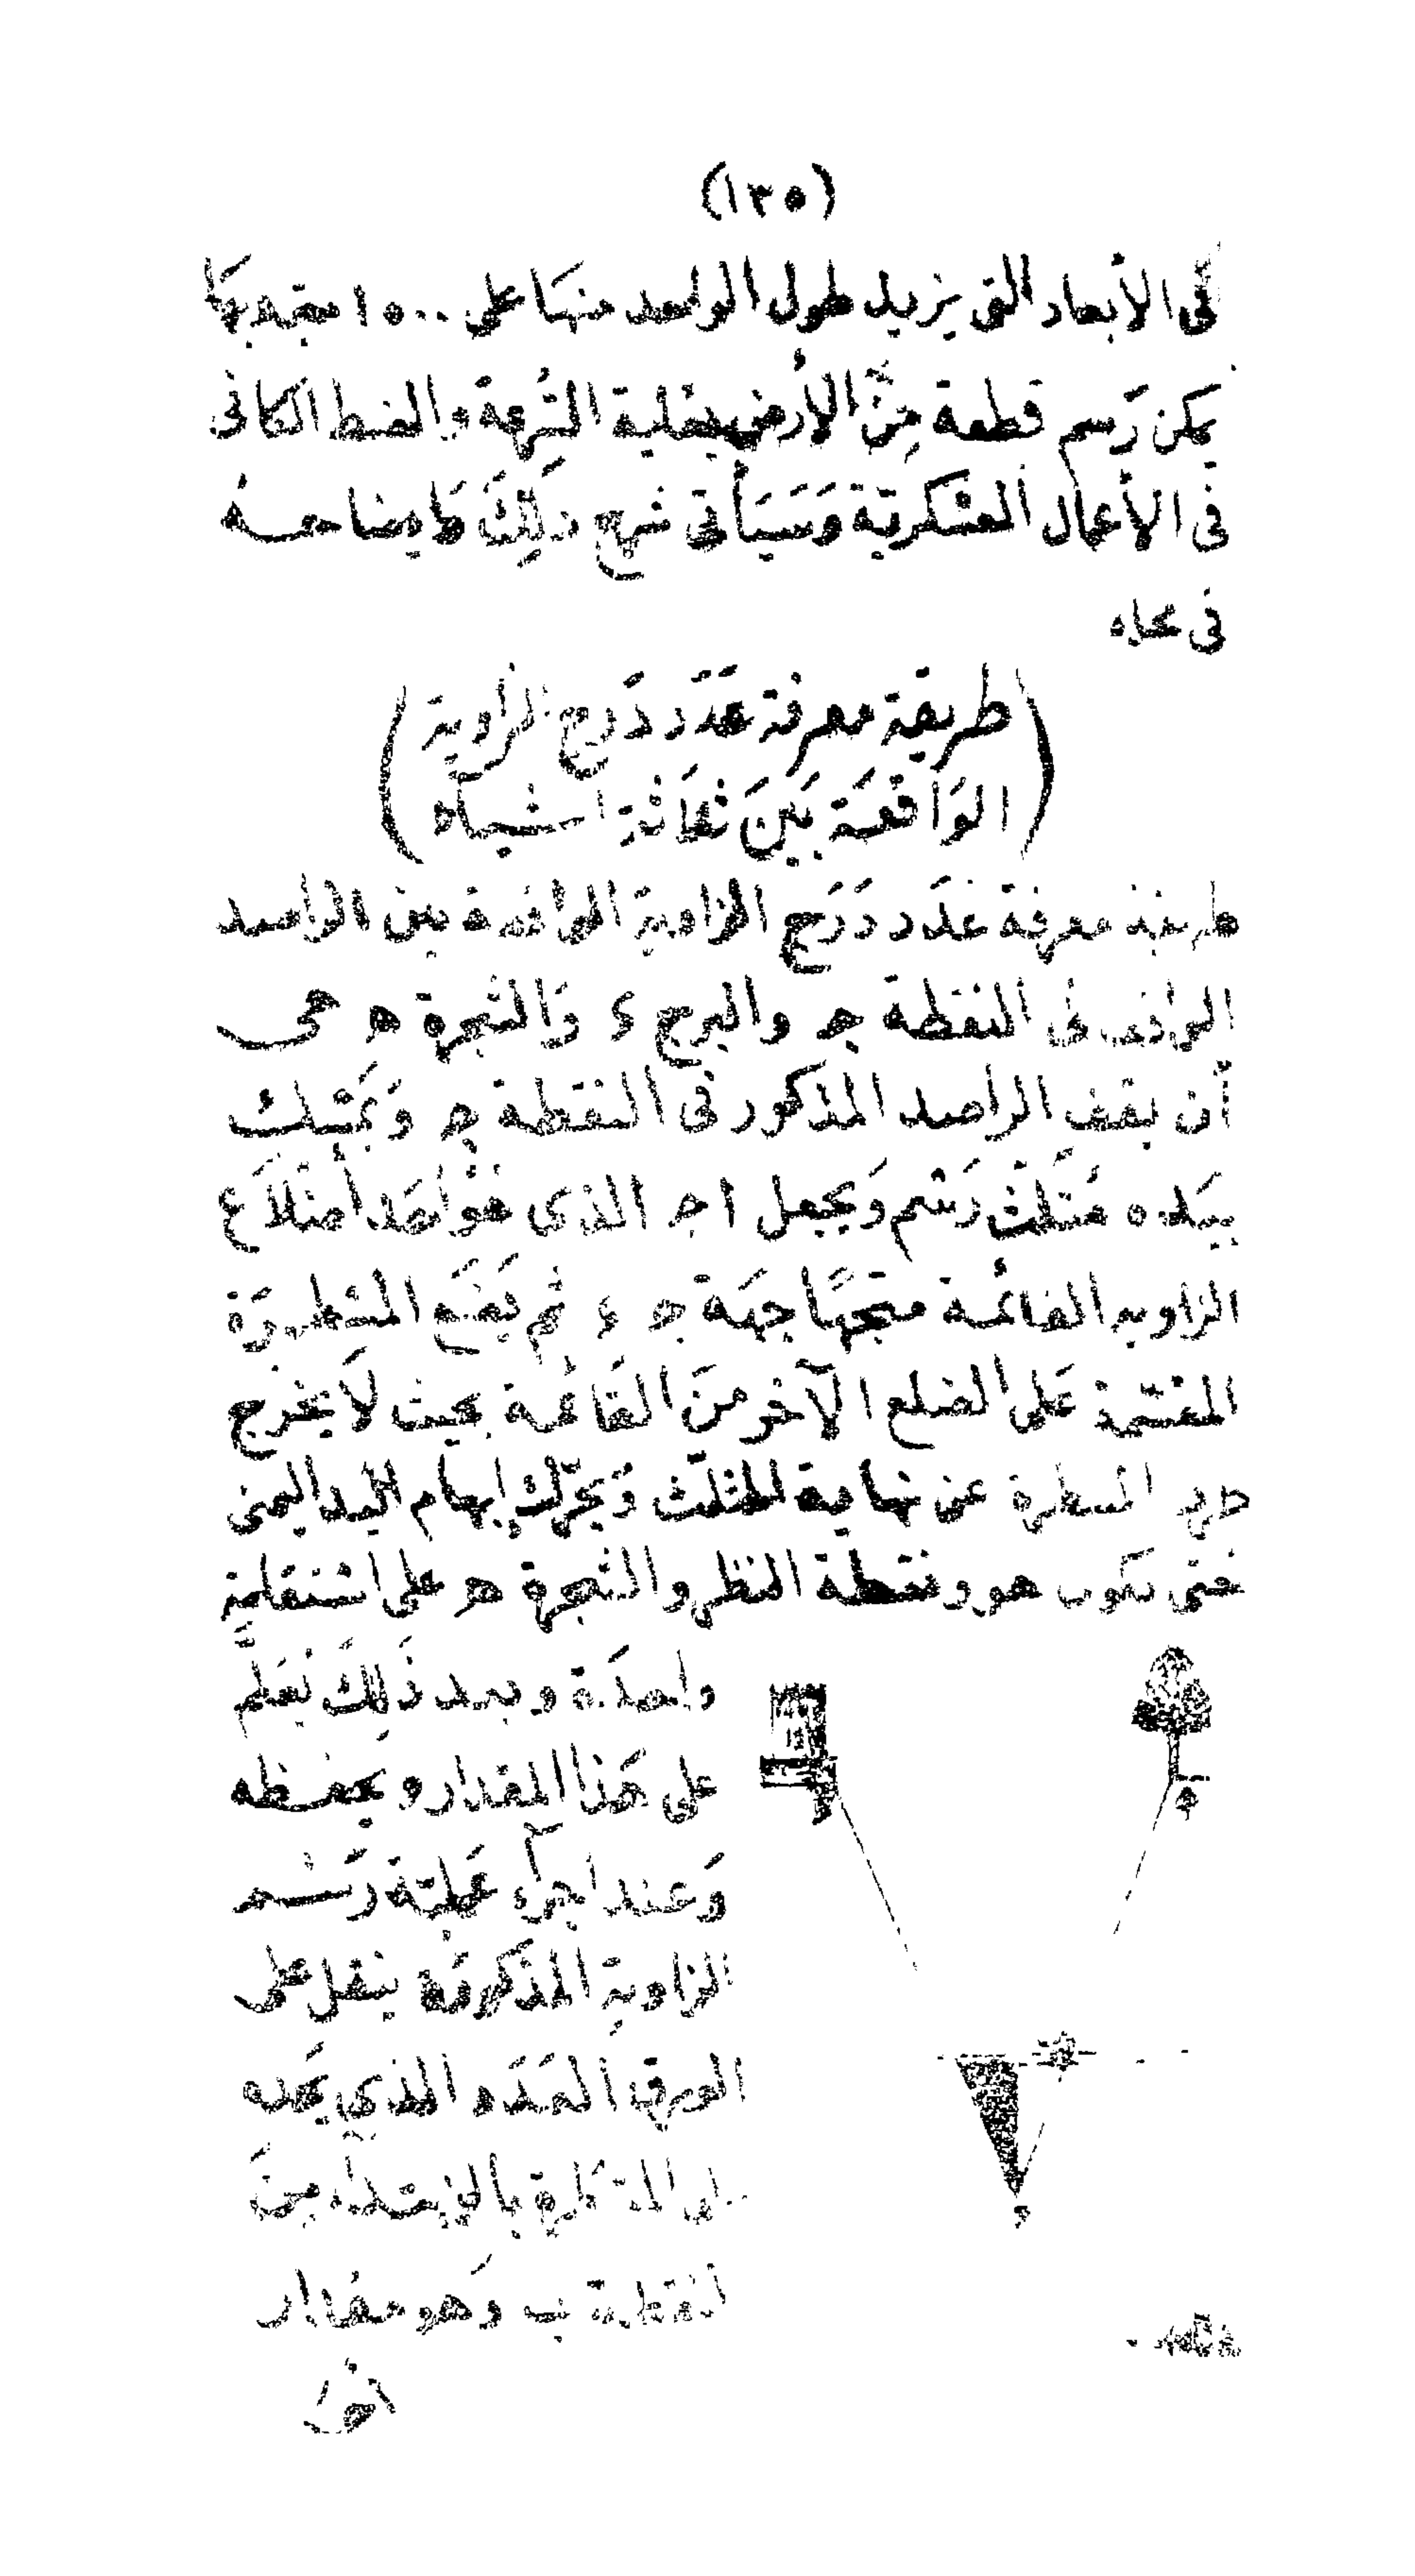 (١٣٥)
في الأبعاد التي يزيد طول الواحد منها على ١٥٠٠
يمكن رَسم قطعة مِنَ الأرض بغاية السُّرعة والضبط الكافي
في الأعمال العسْكريّة وَسَيَأتي شرح ذَلِكَ
في محله
(طريقة معرفة عَدَد دَرَج الزاوية
الوَاقعَة بَينَ ثلَاثة اشياء)
طريقة معرفة عَدَد دَرَج الزاوية الواقعة بين الراصد
الواقف في النقطة جـ والبرج ء وَالشجرة هـ هي
أن يقف الراصد المذكور في النقطة جـ وَيمْسِك
بيَده مُثَلّث رَسْم وَيجعل ا جـ الذي هوَ أحَد أضْلاَع
الزاوية القائمة متجهًا جهَة جـ ء ثم يَضَع المسْطرَة
المقسّمة عَلى الضلع الآخر منَ القَائمة بحيث لاَ يخرج
المسطرة عن نهاية المثلّث وَيحرّك إبهام اليد اليمنى
حتى يكون هو ونقطة النظر والشجرة هـ على اسْتقامة
واحدَة وبعد ذَلِكَ يُعَلّم
على هَذا المقدار ويحفظه
وَعند اجرآء عَمليّة رَسْم
الزاوية المذكورَة ينقل على
الورق العَدَد الذي يجده
بالابتدآء مِنَ
نقطة ب وَهو مقدار